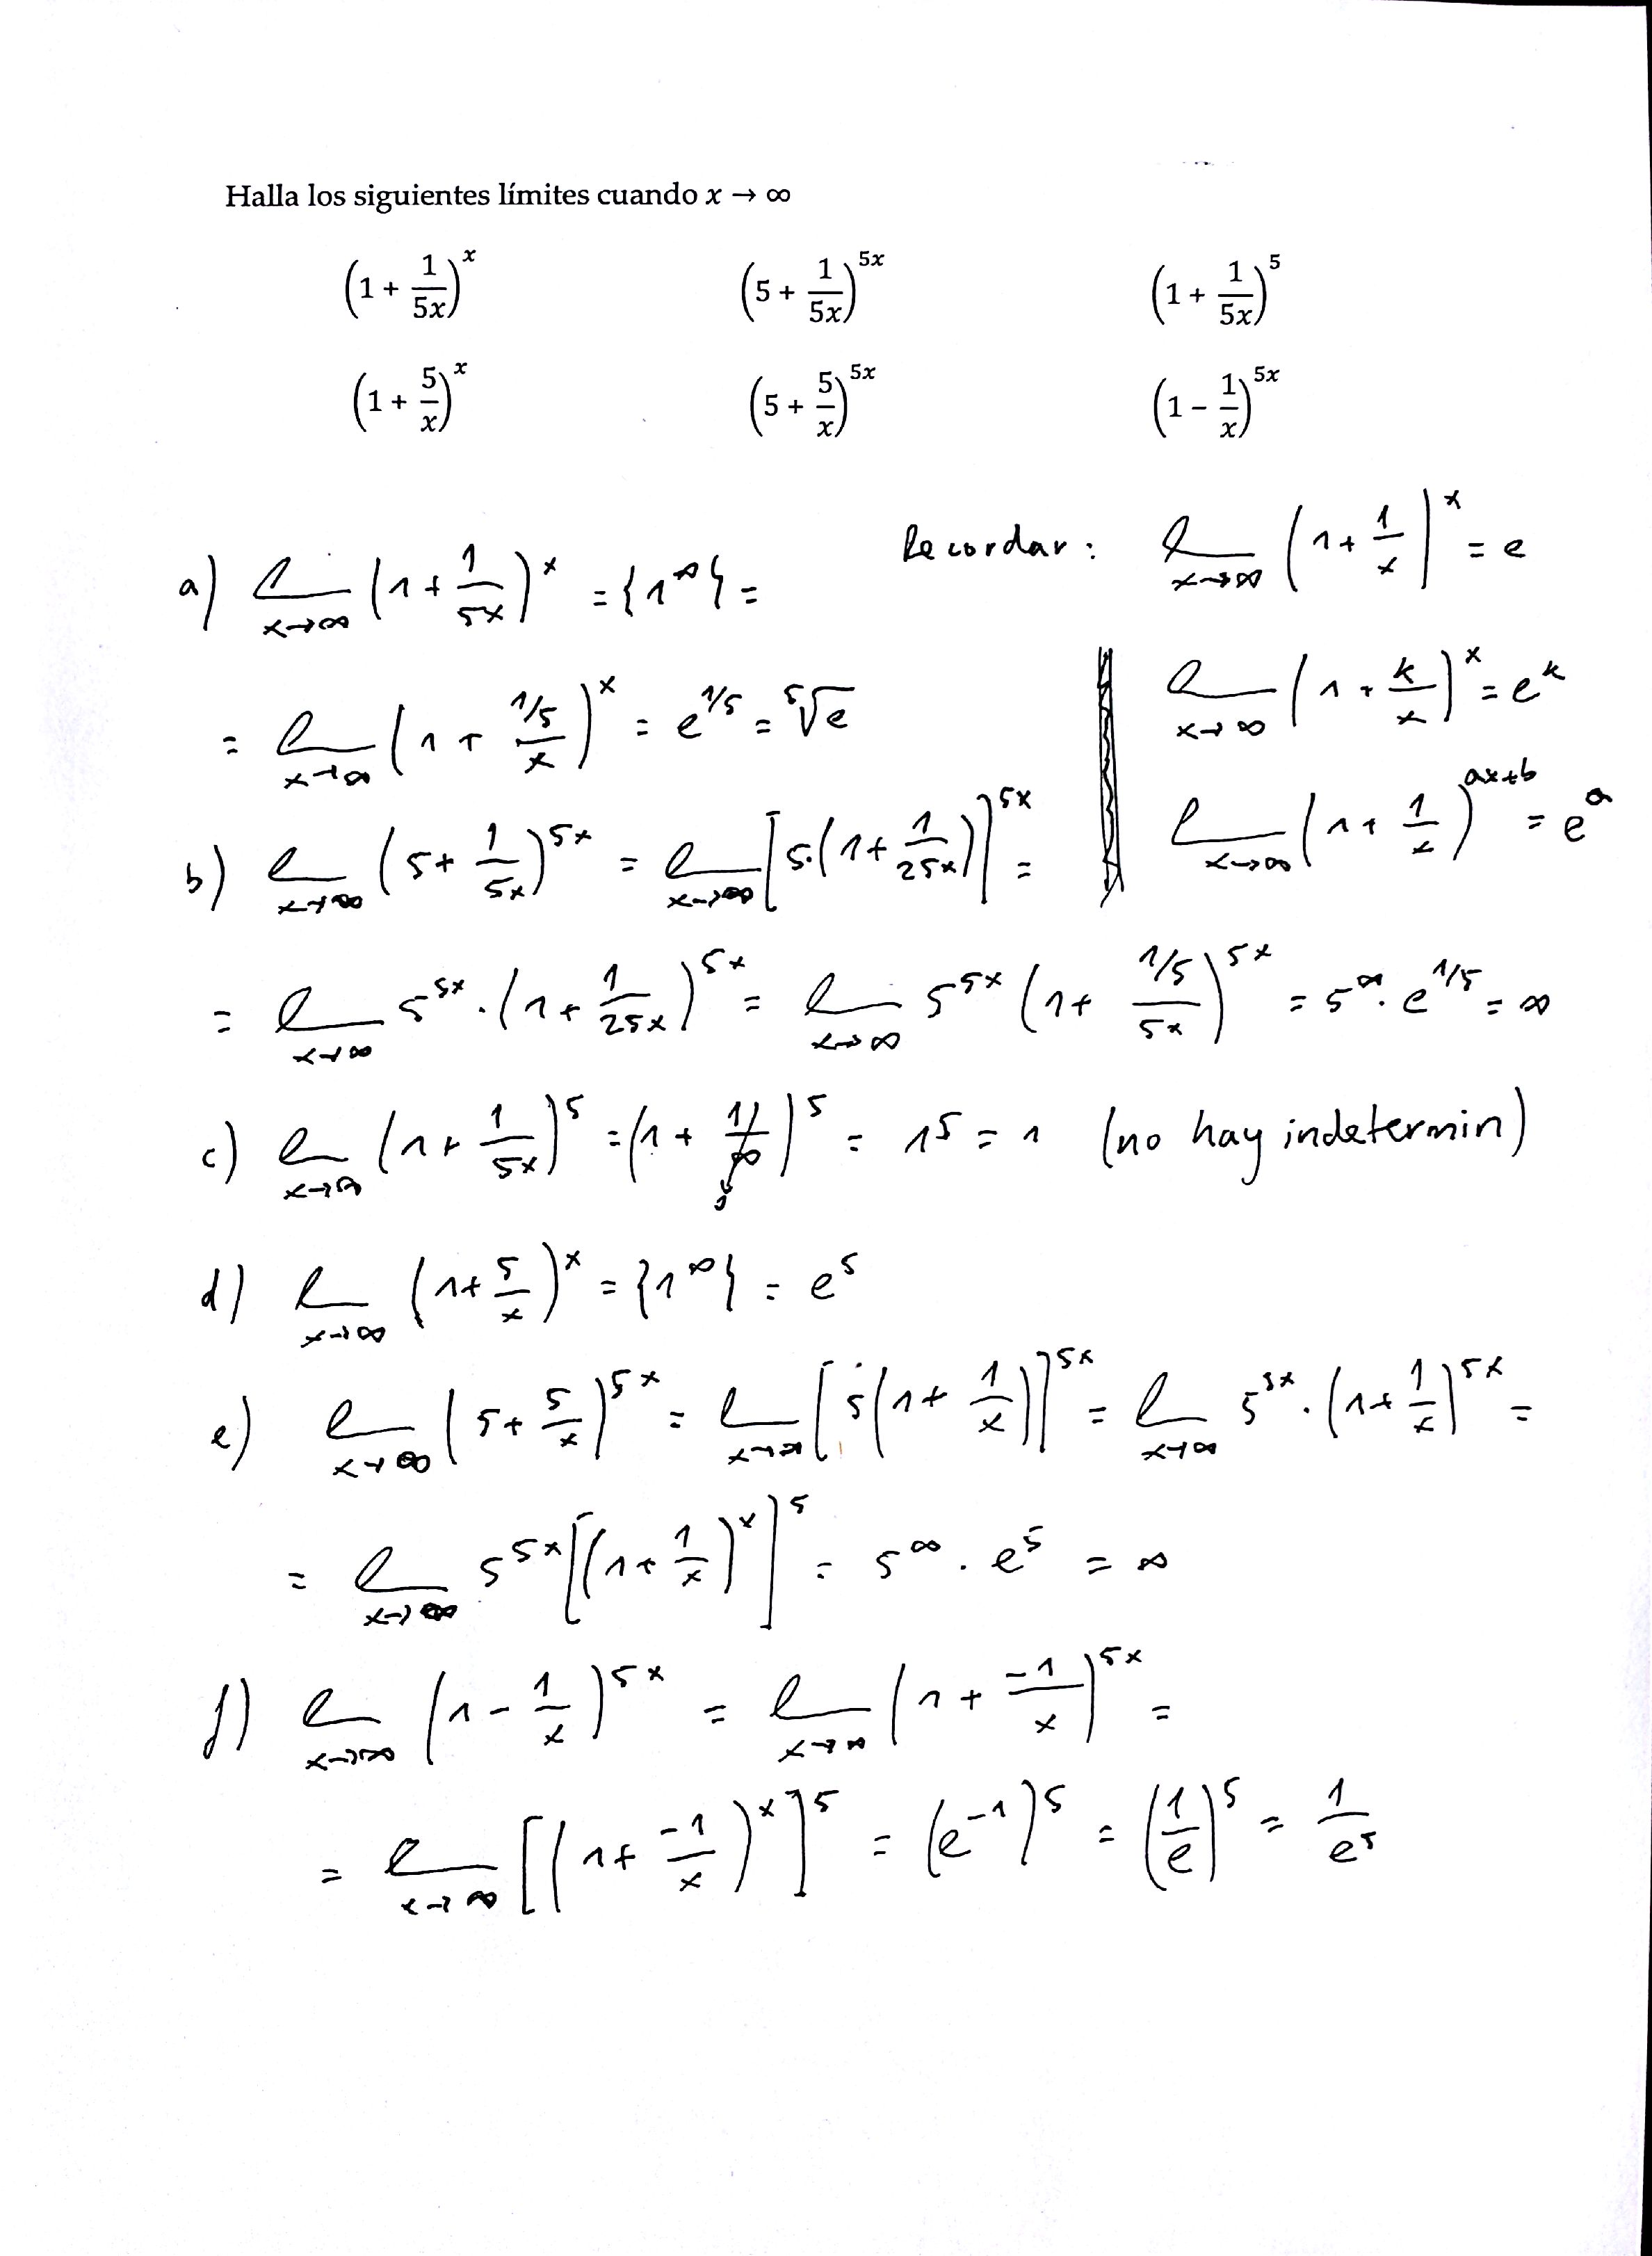 Halla los siguientes límites cuando x → ∞
(1 + 1/(5x))^x (5 + 1/(5x))^(5x) (1 + 1/(5x))^5
(1 + 5/x)^x (5 + 5/x)^(5x) (1 − 1/x)^(5x)
Recordar: l_(x→∞) (1 + 1/x)^x = e
a) l_(x→∞) (1 + 1/(5x))^x = {1^∞} =
l_(x→∞) (1 + k/x)^x = e^k
= l_(x→∞) (1 + (1/5)/x)^x = e^(1/5) = ⁵√e
l_(x→∞) (1 + 1/x)^(ax+b) = e^a
b) l_(x→∞) (5 + 1/(5x))^(5x) = l_(x→∞) [5·(1 + 1/(25x))]^(5x) =
= l_(x→∞) 5^(5x) · (1 + 1/(25x))^(5x) = l_(x→∞) 5^(5x) (1 + (1/5)/(5x))^(5x) = 5^∞ · e^(1/5) = ∞
c) l_(x→∞) (1 + 1/(5x))^5 = (1 + 1/∞ → 0)^5 = 1^5 = 1 (no hay indetermin)
d) l_(x→∞) (1 + 5/x)^x = {1^∞} = e^5
e) l_(x→∞) (5 + 5/x)^(5x) = l_(x→∞) [5(1 + 1/x)]^(5x) = l_(x→∞) 5^(5x) · (1 + 1/x)^(5x) =
= l_(x→∞) 5^(5x) [(1 + 1/x)^x]^5 = 5^∞ · e^5 = ∞
f) l_(x→∞) (1 − 1/x)^(5x) = l_(x→∞) (1 + (−1)/x)^(5x) =
= l_(x→∞) [(1 + (−1)/x)^x]^5 = (e^(−1))^5 = (1/e)^5 = 1/e^5